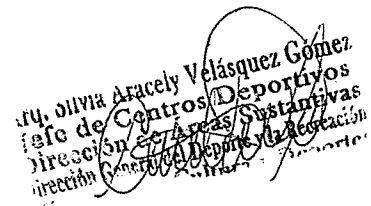 Arq. Silvia Aracely Velásquez Gómez
Jefe de Centros Deportivos
Dirección de Áreas Sustantivas
Dirección General del Deporte y la Recreación